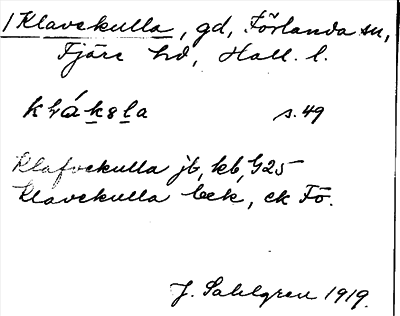 1 Klavekulla, gd, Förlanda sn,
Fjäre hd, Hall. l.
kláksla s.49
Klafvekulla jb, kb, G25
Klavekulla bek, ek Fö.
J. Sahlgren 1919.